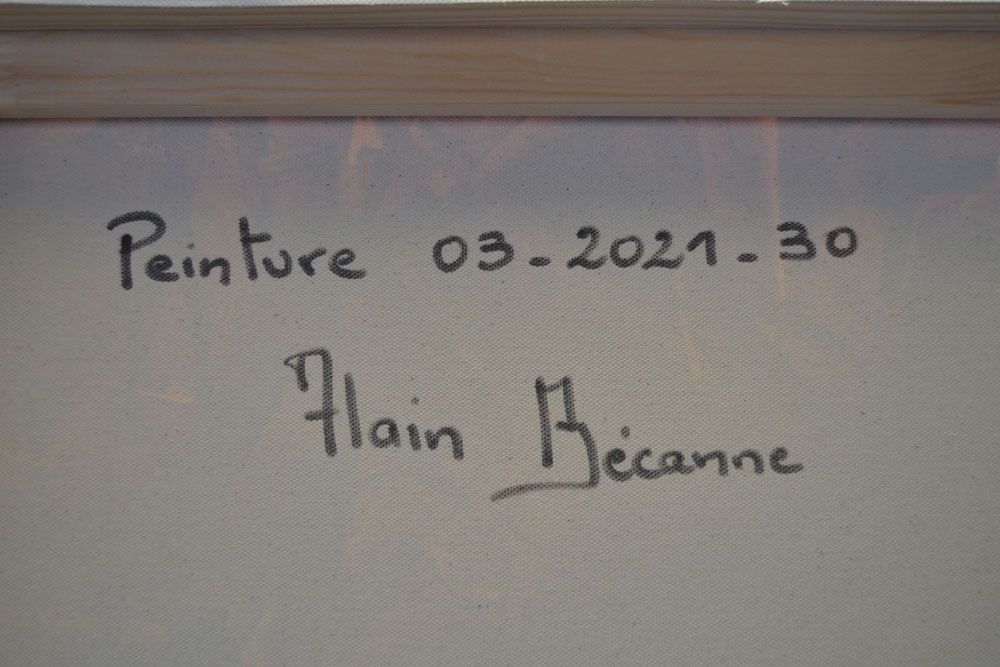 Peinture 03-2021-30
Alain Bécanne